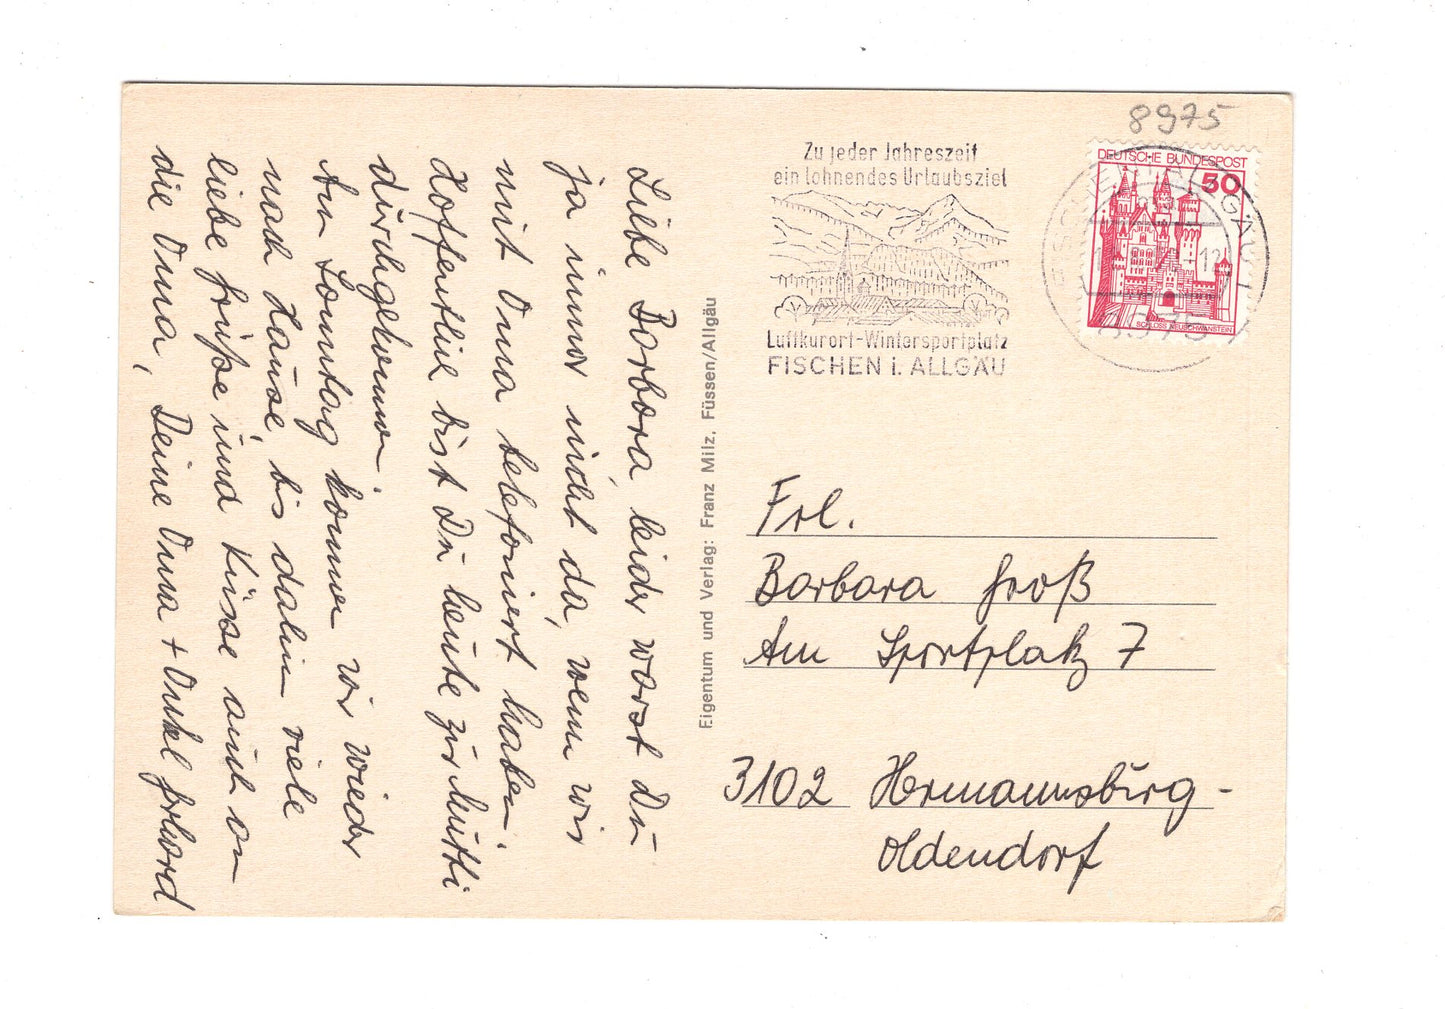 Liebe Barbara, leider warst Du
ja immer nicht da, wenn wir
mit Oma telefoniert haben.
Hoffentlich bist Du heute zu Mutti
durchgekommen.
Am Sonntag kommen wir wieder
nach Hause, bis dahin viele
liebe Grüße und Küsse auch an
die Oma, Deine Oma + Onkel Erhard
Eigentum und Verlag: Franz Milz, Füssen/Allgäu
8975
Zu jeder Jahreszeit
ein lohnendes Urlaubsziel
Luftkurort-Wintersportplatz
FISCHEN i. ALLGÄU
DEUTSCHE BUNDESPOST
50
SCHLOSS NEUSCHWANSTEIN
FISCHEN i. ALLGÄU 1
8975
Frl.
Barbara Groß
Am Sportplatz 7
3102 Hermannsburg-
Oldendorf